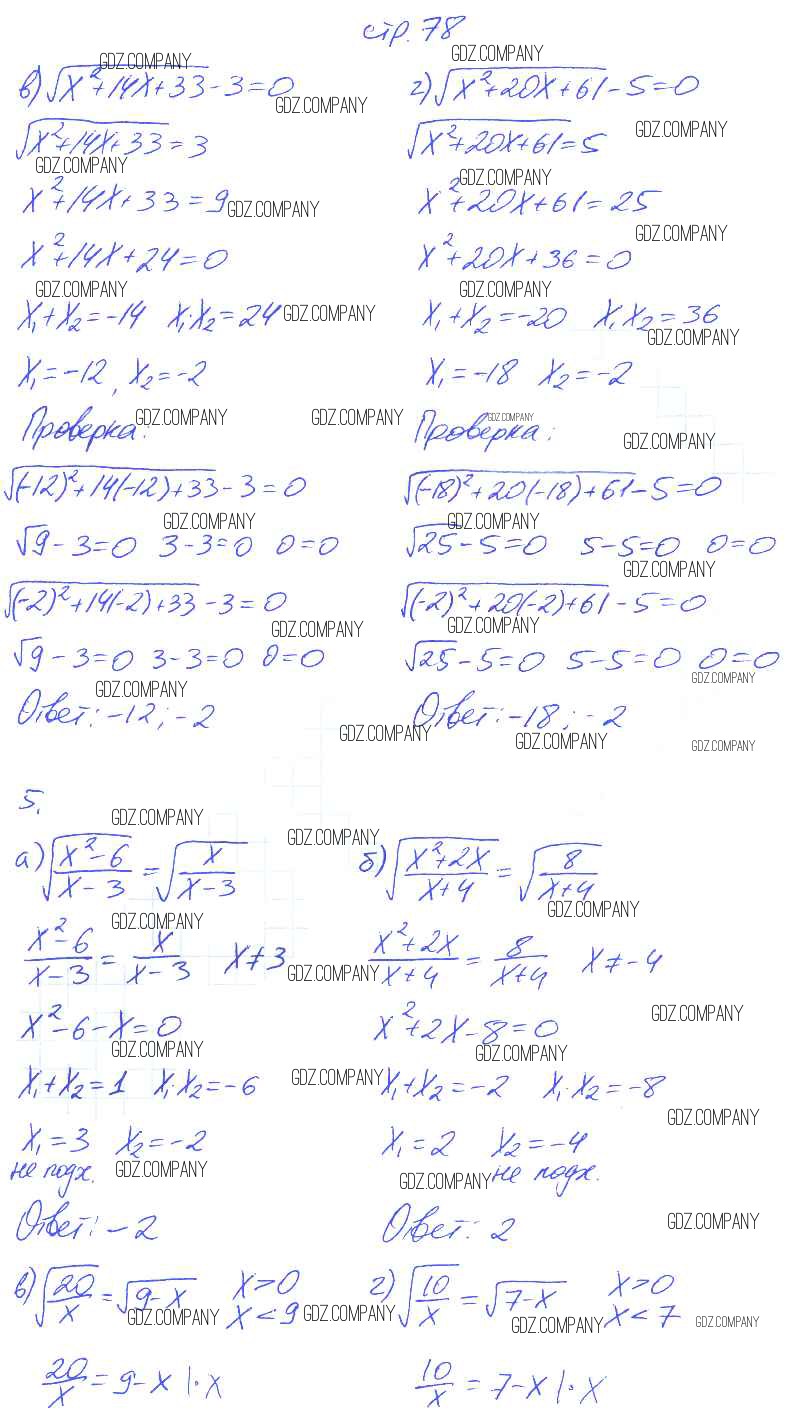 стр. 78
в) √(x²+14x+33) - 3 = 0
√(x²+14x+33) = 3
x²+14x+33 = 9
x²+14x+24 = 0
x₁+x₂ = -14 x₁·x₂ = 24
x₁ = -12, x₂ = -2
Проверка:
√((-12)²+14(-12)+33) - 3 = 0
√9 - 3 = 0 3-3 = 0 0 = 0
√((-2)²+14(-2)+33) - 3 = 0
√9 - 3 = 0 3-3 = 0 0 = 0
Ответ: -12; -2
г) √(x²+20x+61) - 5 = 0
√(x²+20x+61) = 5
x²+20x+61 = 25
x²+20x+36 = 0
x₁+x₂ = -20 x₁x₂ = 36
x₁ = -18 x₂ = -2
Проверка:
√((-18)²+20(-18)+61) - 5 = 0
√25 - 5 = 0 5-5 = 0 0 = 0
√((-2)²+20(-2)+61) - 5 = 0
√25 - 5 = 0 5-5 = 0 0 = 0
Ответ: -18; -2
5.
а) √((x²-6)/(x-3)) = √(x/(x-3))
(x²-6)/(x-3) = x/(x-3) x≠3
x²-6-x = 0
x₁+x₂ = 1 x₁·x₂ = -6
x₁ = 3 x₂ = -2
не подх.
Ответ: -2
б) √((x²+2x)/(x+4)) = √(8/(x+4))
(x²+2x)/(x+4) = 8/(x+4) x≠-4
x²+2x-8 = 0
x₁+x₂ = -2 x₁·x₂ = -8
x₁ = 2 x₂ = -4
не подх.
Ответ: 2
в) √(20/x) = √(9-x) x>0
x<9
20/x = 9-x |·x
г) √(10/x) = √(7-x) x>0
x<7
10/x = 7-x |·x
GDZ.COMPANY